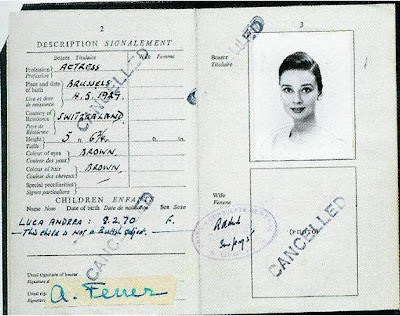 2
DESCRIPTION SIGNALEMENT
Bearer Titulaire
Wife Femme
Profession
Profession
ACTRESS
Place and date
of birth
Lieu et date
de naissance
BRUSSELS
4.5.1929.
Country of
Residence
Pays de
Résidence
SWITZERLAND
Height
Taille
5 ft. 6¾ in.
ft. in.
Colour of eyes
Couleur des yeux
BROWN
Colour of hair
Couleur des cheveux
BROWN
Special peculiarities
Signes particuliers
CHILDREN ENFANTS
Name Nom Date of birth Date de naissance Sex Sexe
LUCA ANDREA : 8.2.70
This child is not a British subject.
Usual signature of bearer
Signature
A. Ferrer
Usual
Signature
CANCELLED
CANCELLED
CANCELLED
3
Bearer
Titulaire
Wife
Femme
(PHOTO)
CANCELLED
CANCELLED